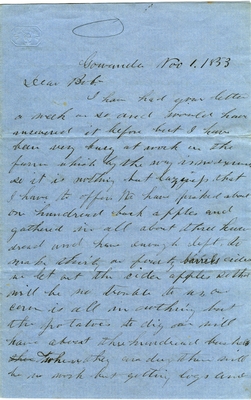 Gowanda Nov 1. 1853
Dear Bob
I have had your letter
a week or so and would have
answered it before but I have
been very busy at work on the
farm which by the way is no excuse
so it is nothing but that
I have to offer We have picked about
on hundred bush apples and
gathered in all about three hun
dred and have enough left to
make thirty or forty barrels cider
we let out the cider apples so this
will be no trouble to us, our
corn is all in nothing but
the potatoes to dig we will
have about three hundred bushels
when they are dug then will
be no work but getting logs and